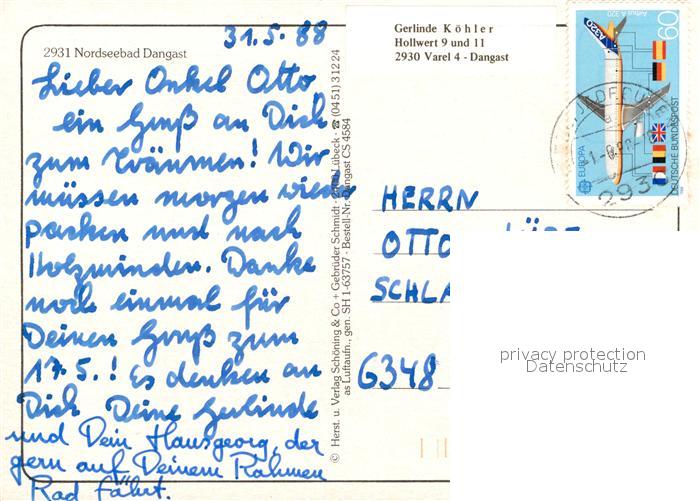 31.5.88
2931 Nordseebad Dangast
Lieber Onkel Otto,
ein Gruß an Dich
zum Träumen! Wir
müssen morgen wieder
packen und nach
Holzminden. Danke
noch einmal für
Deinen Gruß zum
17.5.! Es denken an
Dich Deine Gerlinde
und Dein Hausgeorg, der
gern auf Deinem Rahmen
Rad fährt.
© Herst. u. Verlag Schöning & Co + Gebrüder Schmidt · Lübeck · ☎ (04 51) 3 12 24
as Luftaufn., gen. SH 1-63757 · Bestell-Nr. Dangast CS 4584
Gerlinde Köhler
Hollwert 9 und 11
2930 Varel 4 - Dangast
Airbus A 320
60
A320
EUROPA
DEUTSCHE BUNDESPOST
293
HERRN
OTTO
SCHLA
6348
privacy protection
Datenschutz